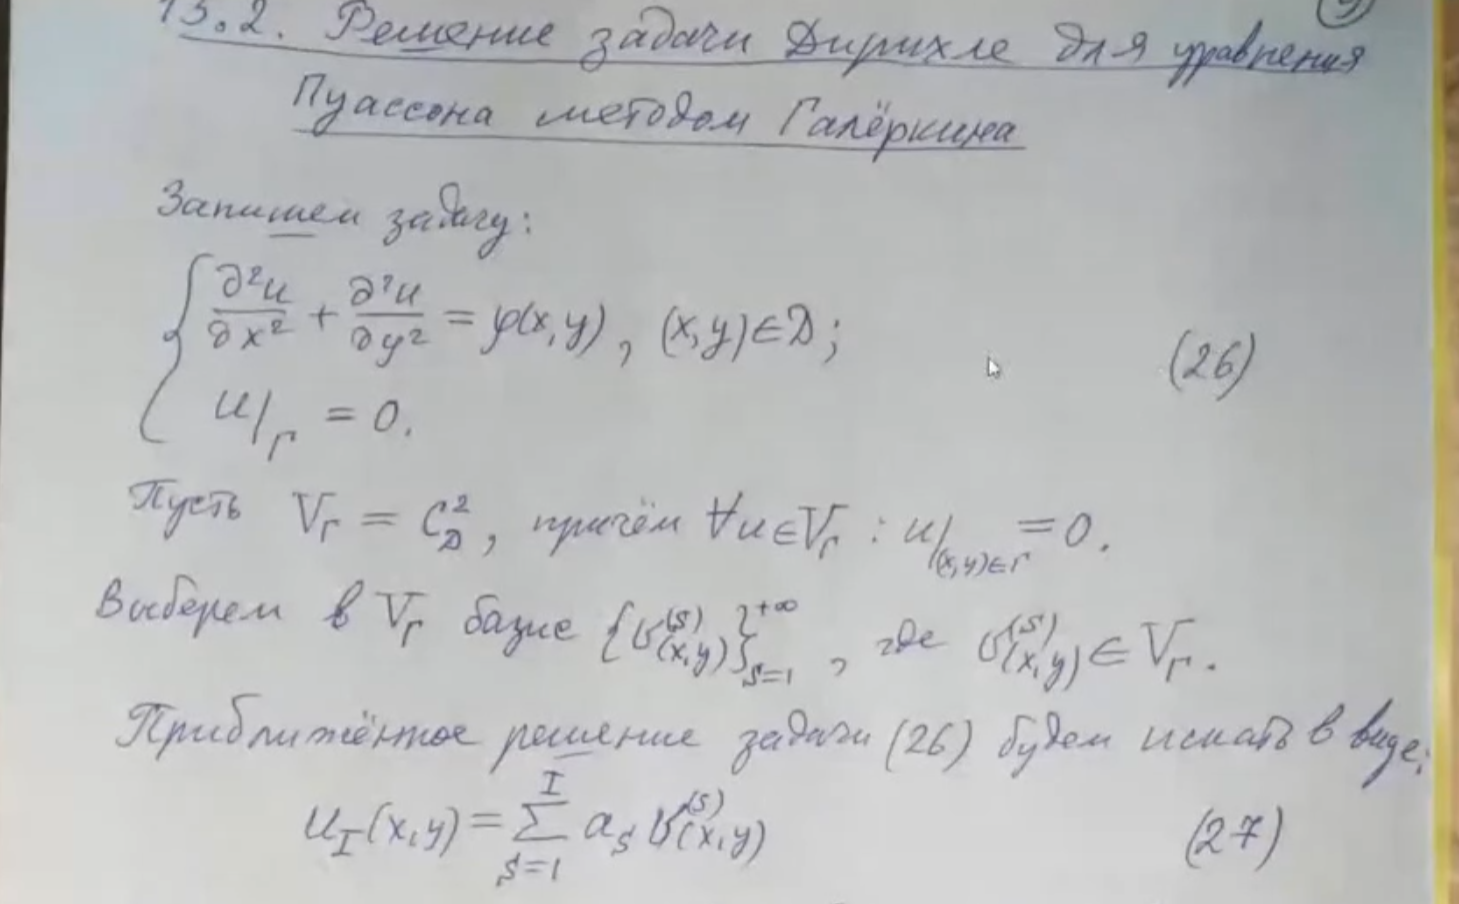 13.2. Решение задачи Дирихле для уравнения
Пуассона методом Галёркина
Запишем задачу:
∂²u/∂x² + ∂²u/∂y² = φ(x,y), (x,y)∈D; (26)
u|_Γ = 0.
Пусть V_Γ = C²_D, причём ∀u∈V_Γ : u|_(x,y)∈Γ = 0.
Выберем в V_Γ базис {v^(s)(x,y)}^+∞_s=1, где v^(s)(x,y) ∈ V_Γ.
Приближённое решение задачи (26) будем искать в виде:
u_I(x,y) = ∑^I_s=1 a_s v^(s)(x,y) (27)